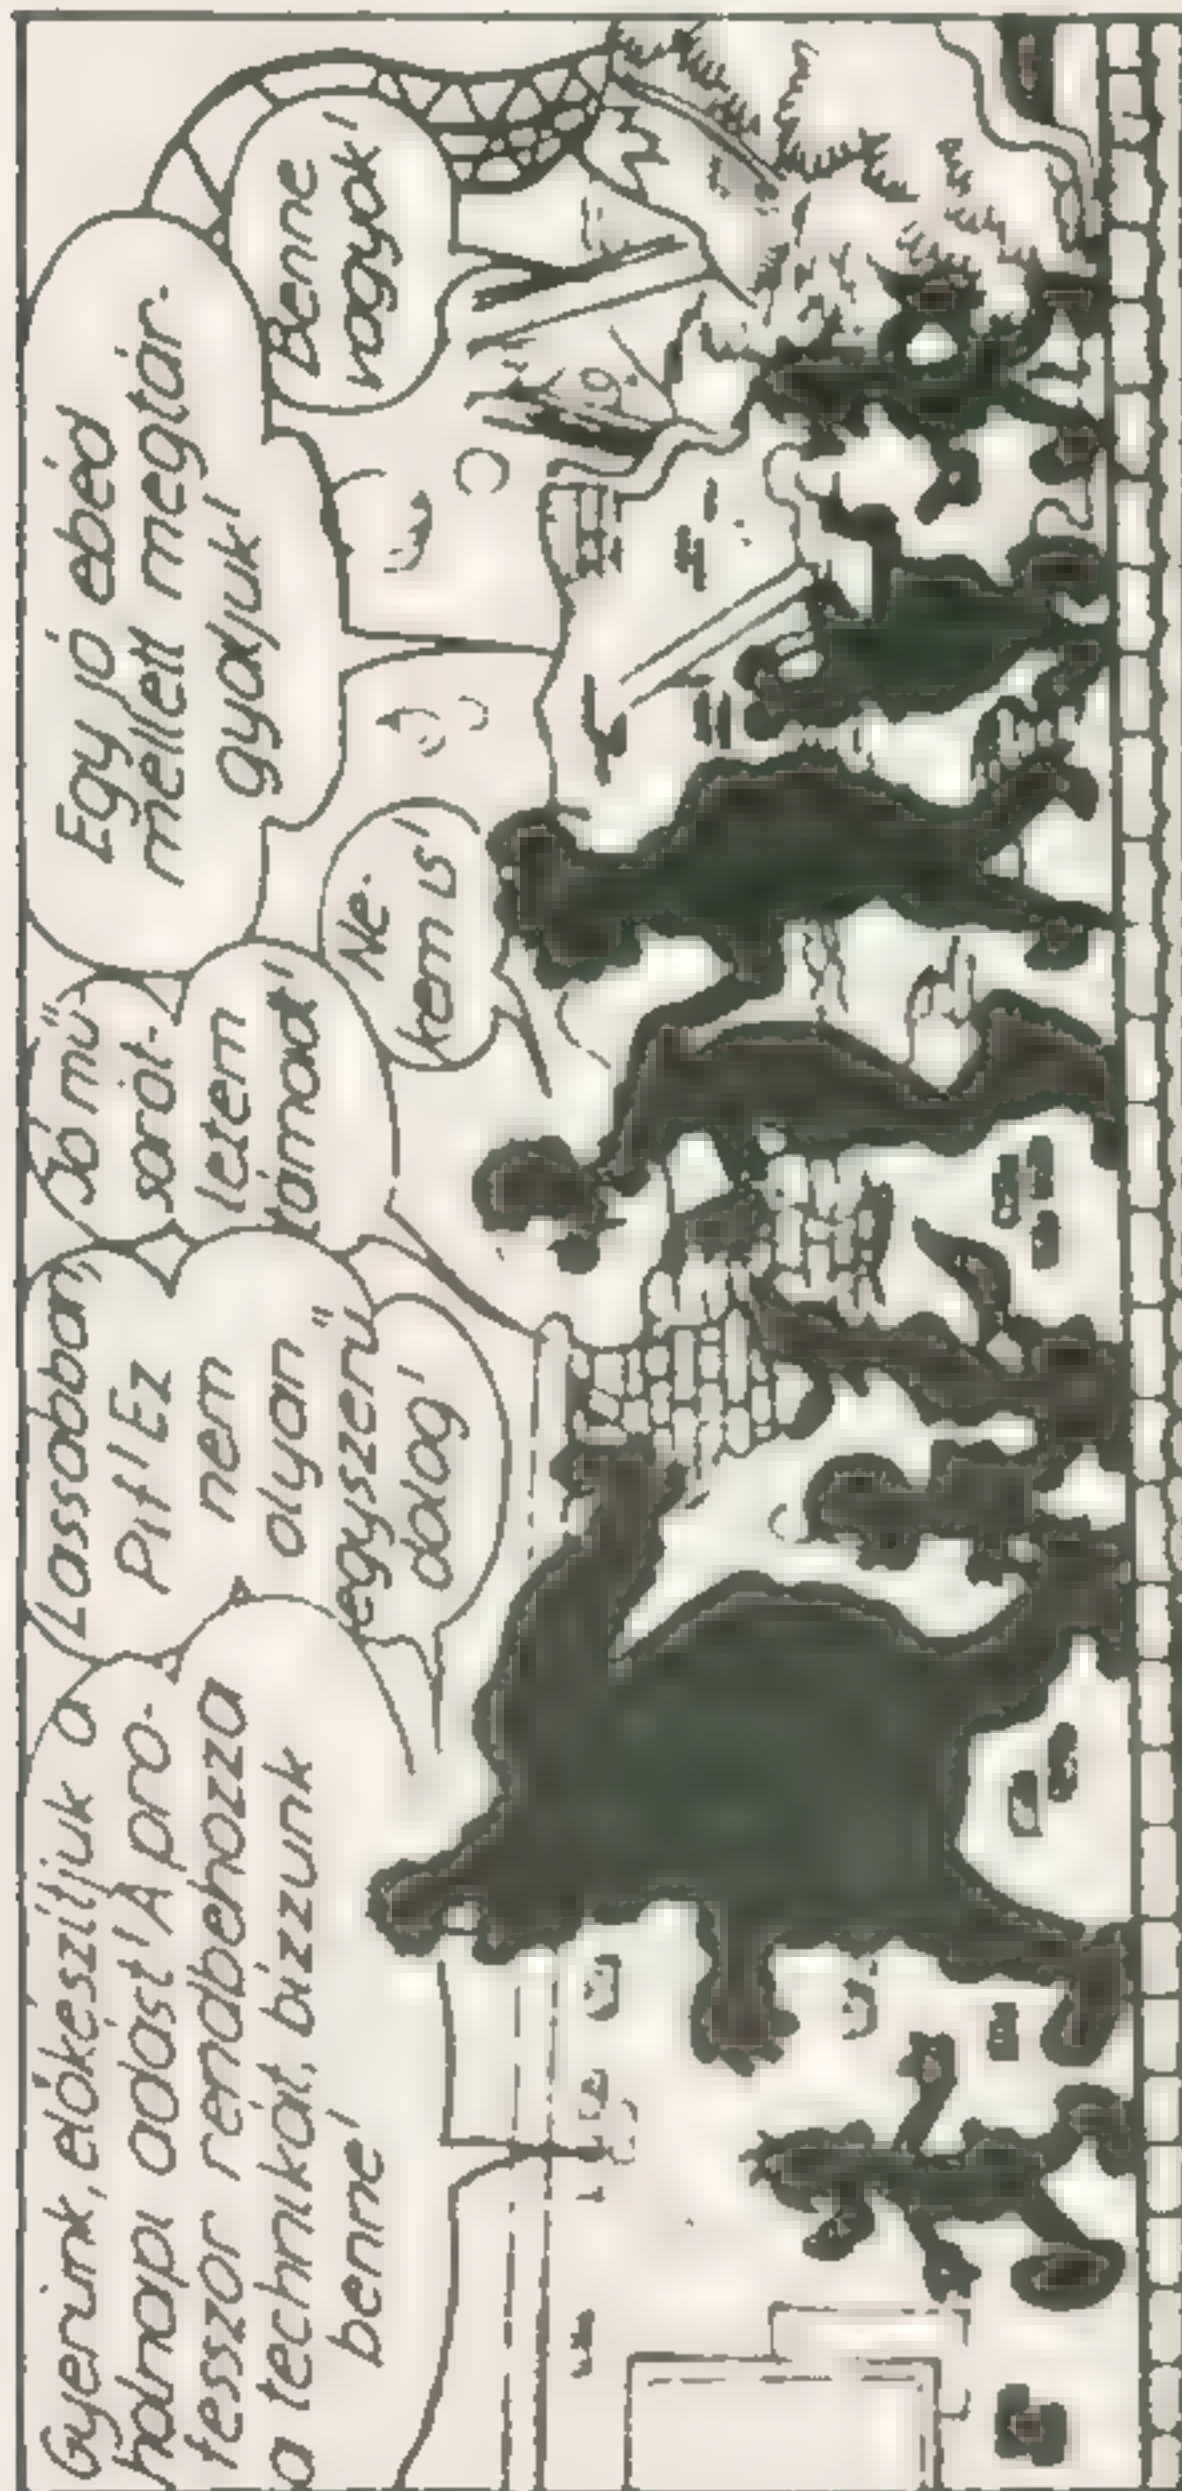 Gyerünk, előkészítjuk a
holnapi adást! A pro-
fesszor rendbehozza
a technikát, bizzunk
benne!
Lassabban,
Pif! Ez
nem
olyan
egyszerű
dolog!
Jó mű-
soröt-
letem
támadt!
Ne-
kem is!
Egy jó ebéd
mellett megtár-
gyaljuk!
Benne
vagyok!